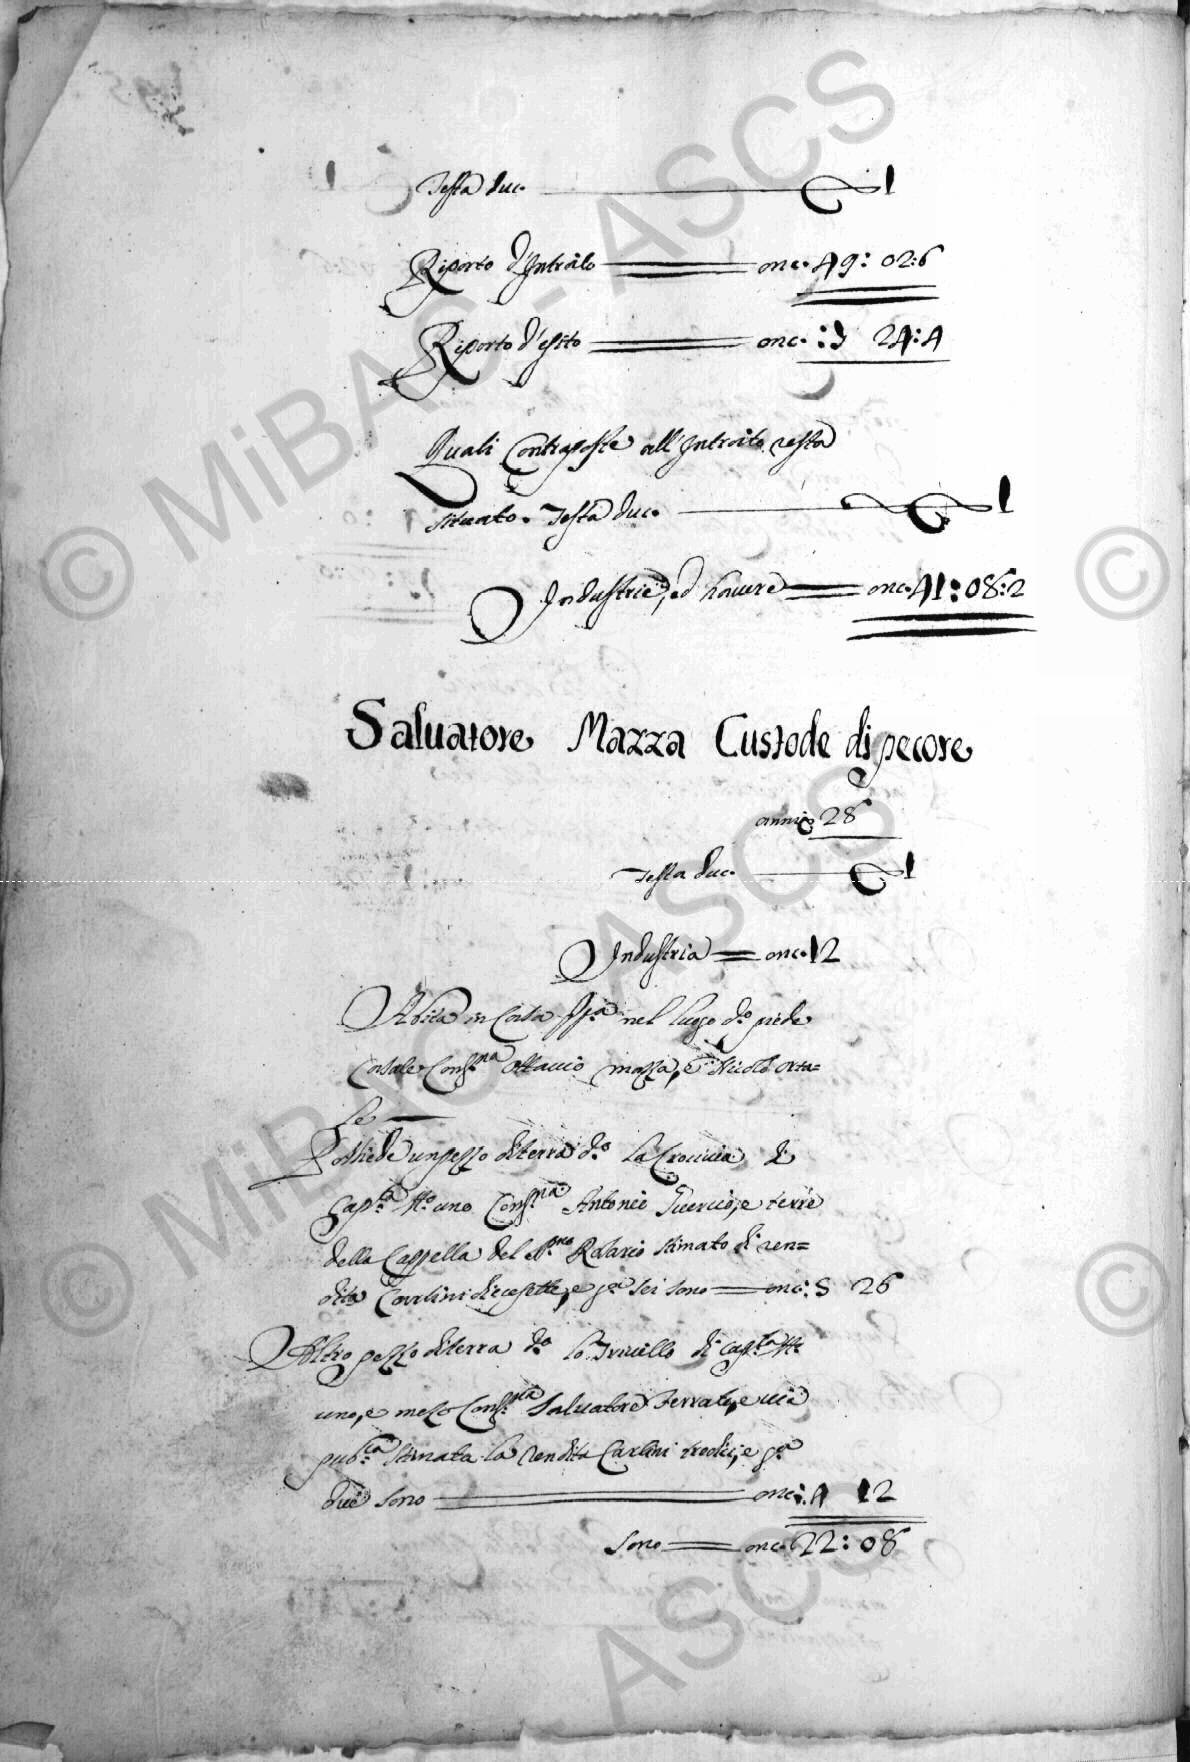 Testa duc. 1
Riporto d'Introito onc. 49: 02:6
Riporto d'esito onc. : 24:4
Quali Contraposte all'Introito resta
situato. Testa duc. 1
Industrie, ed havere onc. 41:08:2
Salvatore Mazza Custode di pecore
anni 28
Testa duc. 1
Industria onc. 12
Abita in Casa nel luogo d.o piede
Casale Conf.na Ottavio mazza, e Nicolò orta=
le
Possiede un pezzo di terra d.o la Croccia di
cap.tà tt.o uno Conf.na Antonio Guercio, e terre
della Cappella del Rosario stimato di ren=
dita Carlini diecesette, e g.a sei sono onc: 5 26
Altro pezzo di terra d.o lo di cap.tà tt.o
uno, e mezo Conf.na Salvatore Ferrato, e via
pub.ca stimata la rendita Carlini tredici, e g.a
due sono onc: 4 12
sono onc. 22: 08
© MiBAC - ASCS ©
© MiBAC - ASCS ©
ASCS